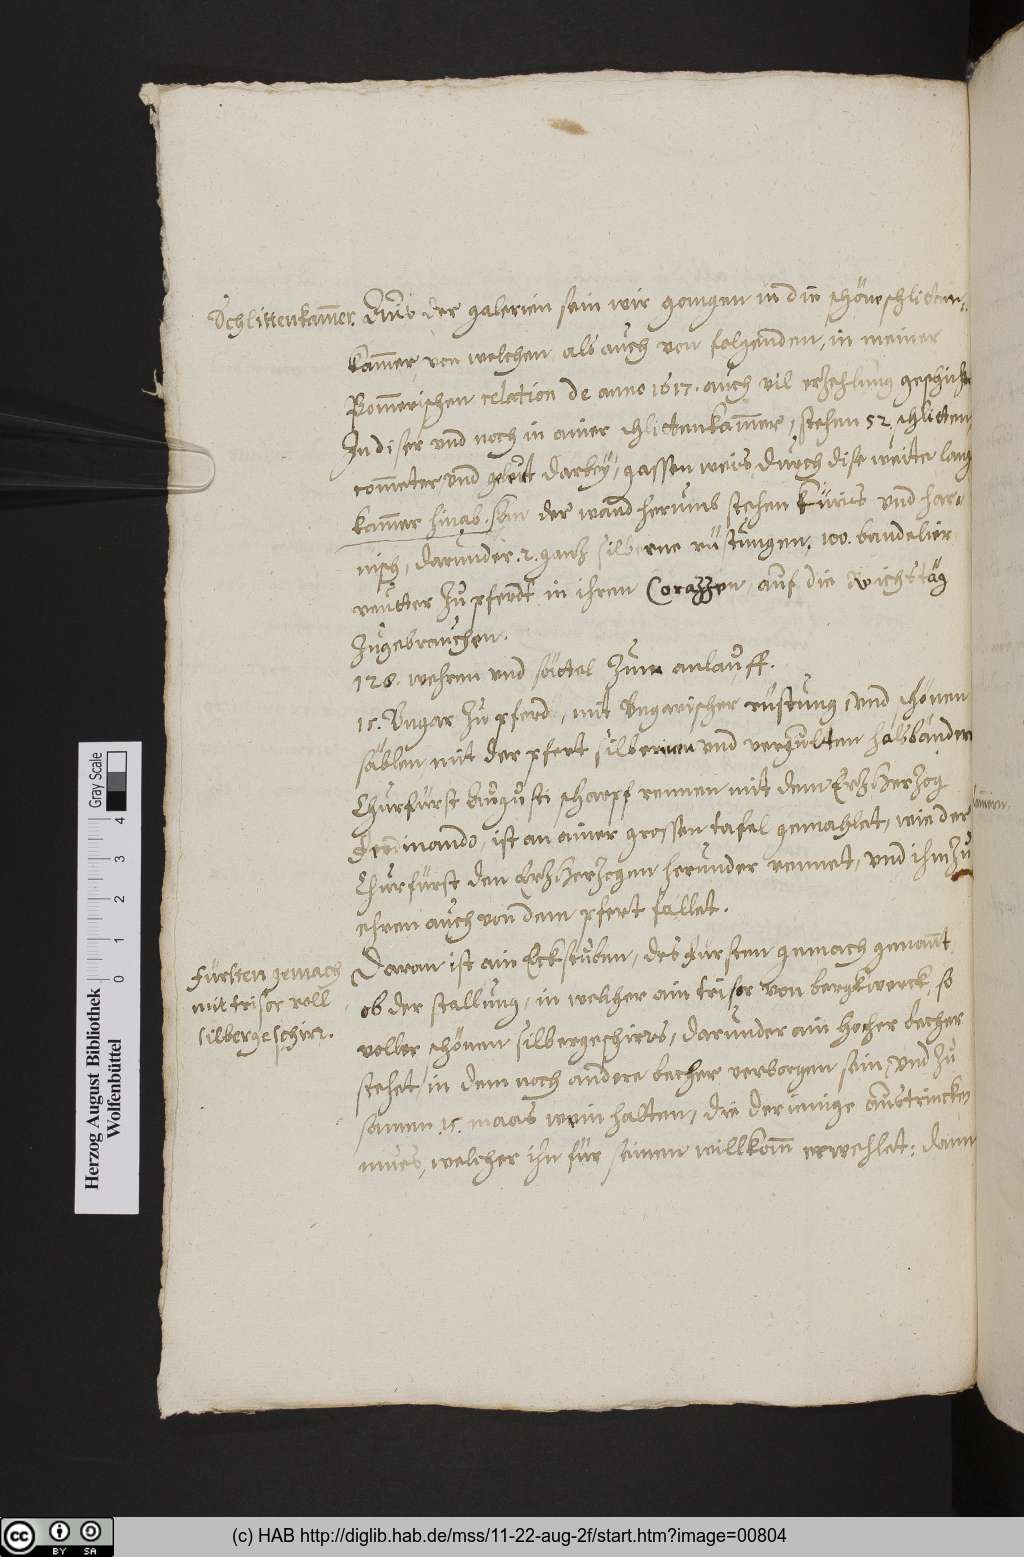 Schlittenkam̅er. Aus der galerien sein wir gangen in die schöne schlitten-
kam̅er, von welchen als auch von folgenden, in meiner
Pom̅erischen relation de anno 1617. auch vil erzehlung geschicht
In diser vnd noch in ainer schlittenkam̅er, stehen 52. schlitten,
com̅eter vnd geleut darbeÿ, gassen weis durch dise weite lang
kam̅er hinab. An der wand herumb stehen Küris vnd har-
nisch, darunder .2. gantz silberne rüstungen, 100. bandelier
reütter zu pferdt in ihren Corazzen, auf die Reichstäg
zugebrauchen.
128. wehren vnd sättel zum anlauff.
15. Vngar zu pferd, mit Vngarischer rüstung, vnd schönen
säblen mit der pfert silbernen vnd vergulten halsbändern
Churfürst Augusti scharpf rennen mit dem Ertzherzog
Ferdinando, ist an ainer grossen tafel gemahlet, wie der
Churfürst den Ertzherzogen herunder rennet, vnd ihm zu
ehren auch von dem pfert fallet.
Fürsten gemach
mit trisor voll
silbergeschirr.
Daran ist ain Eckstuben, des fürsten gemach genan̅t,
ob der stallung, in welcher ain trisor von bergkwerck, so
voller schönen silbergeschirrs, darunder ain hocher becher
stehet, in dem noch andere becher verborgen sein, vnd zu
samen .15. maas wein halten, die derienige austrincken
mues, welcher ihn für seinen willkom̅ erwehlet: dann
Herzog August Bibliothek
Wolfenbüttel
0 1 2 3 4
Gray Scale
cc BY SA
(c) HAB http://diglib.hab.de/mss/11-22-aug-2f/start.htm?image=00804